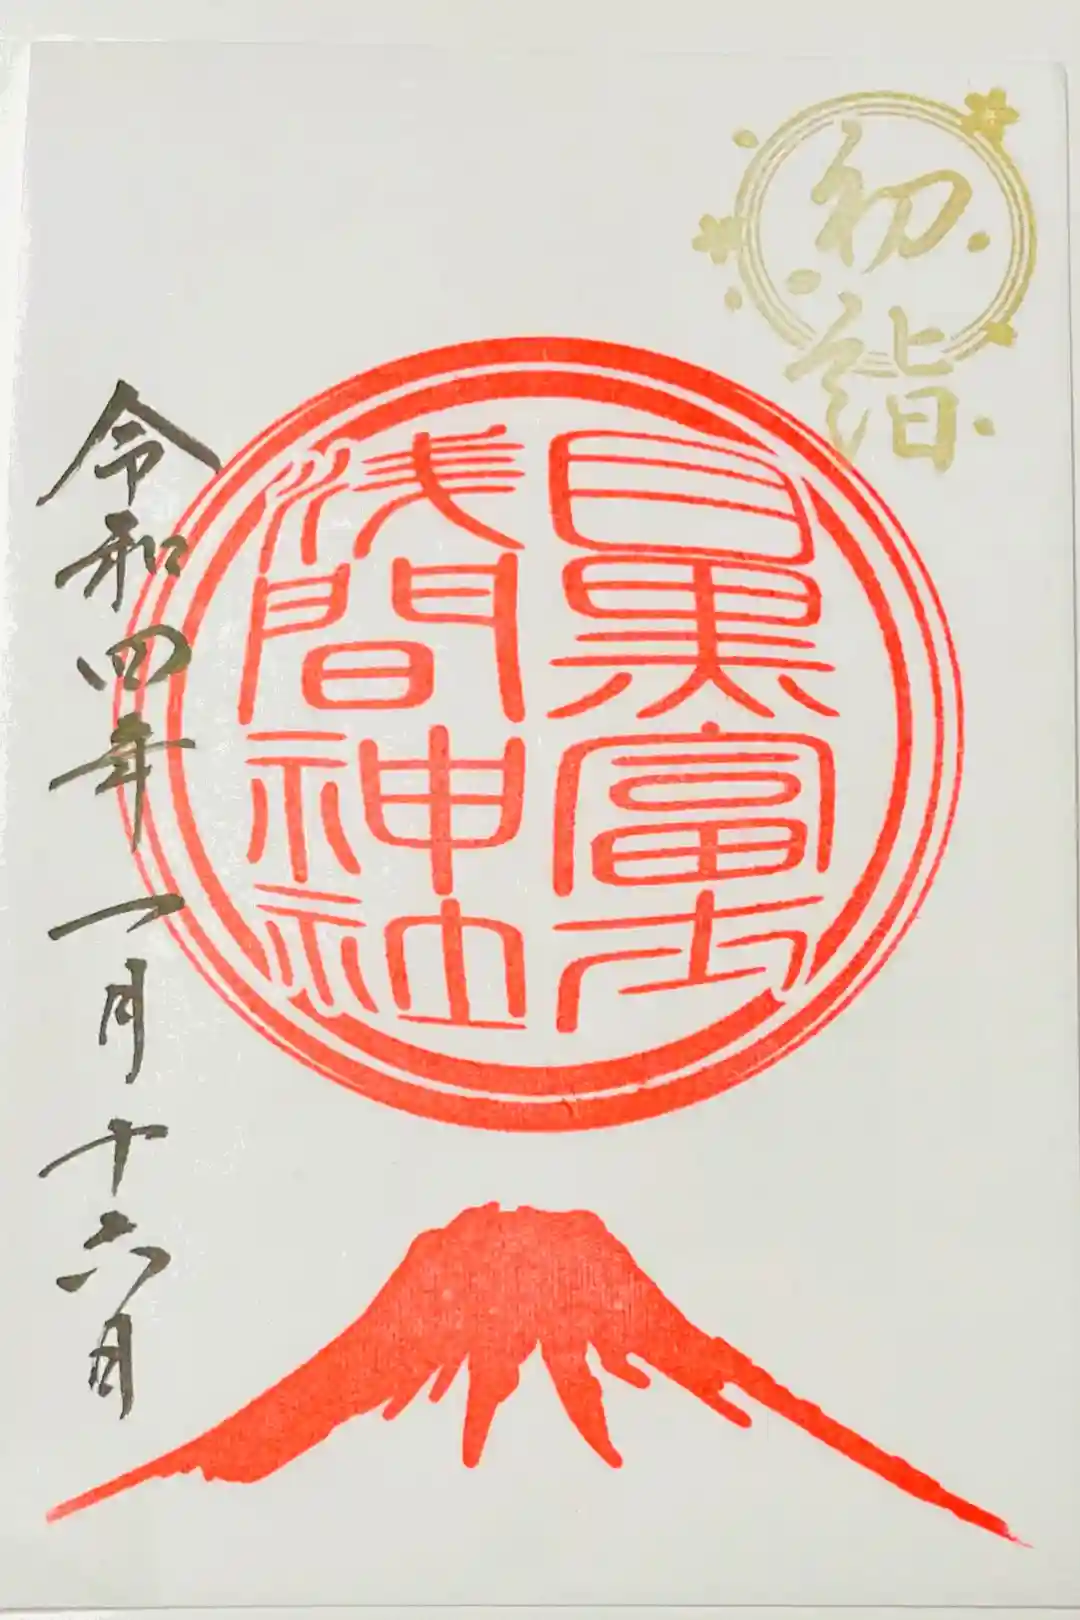 初詣
目黒富士
浅間神社
令和四年一月十六日